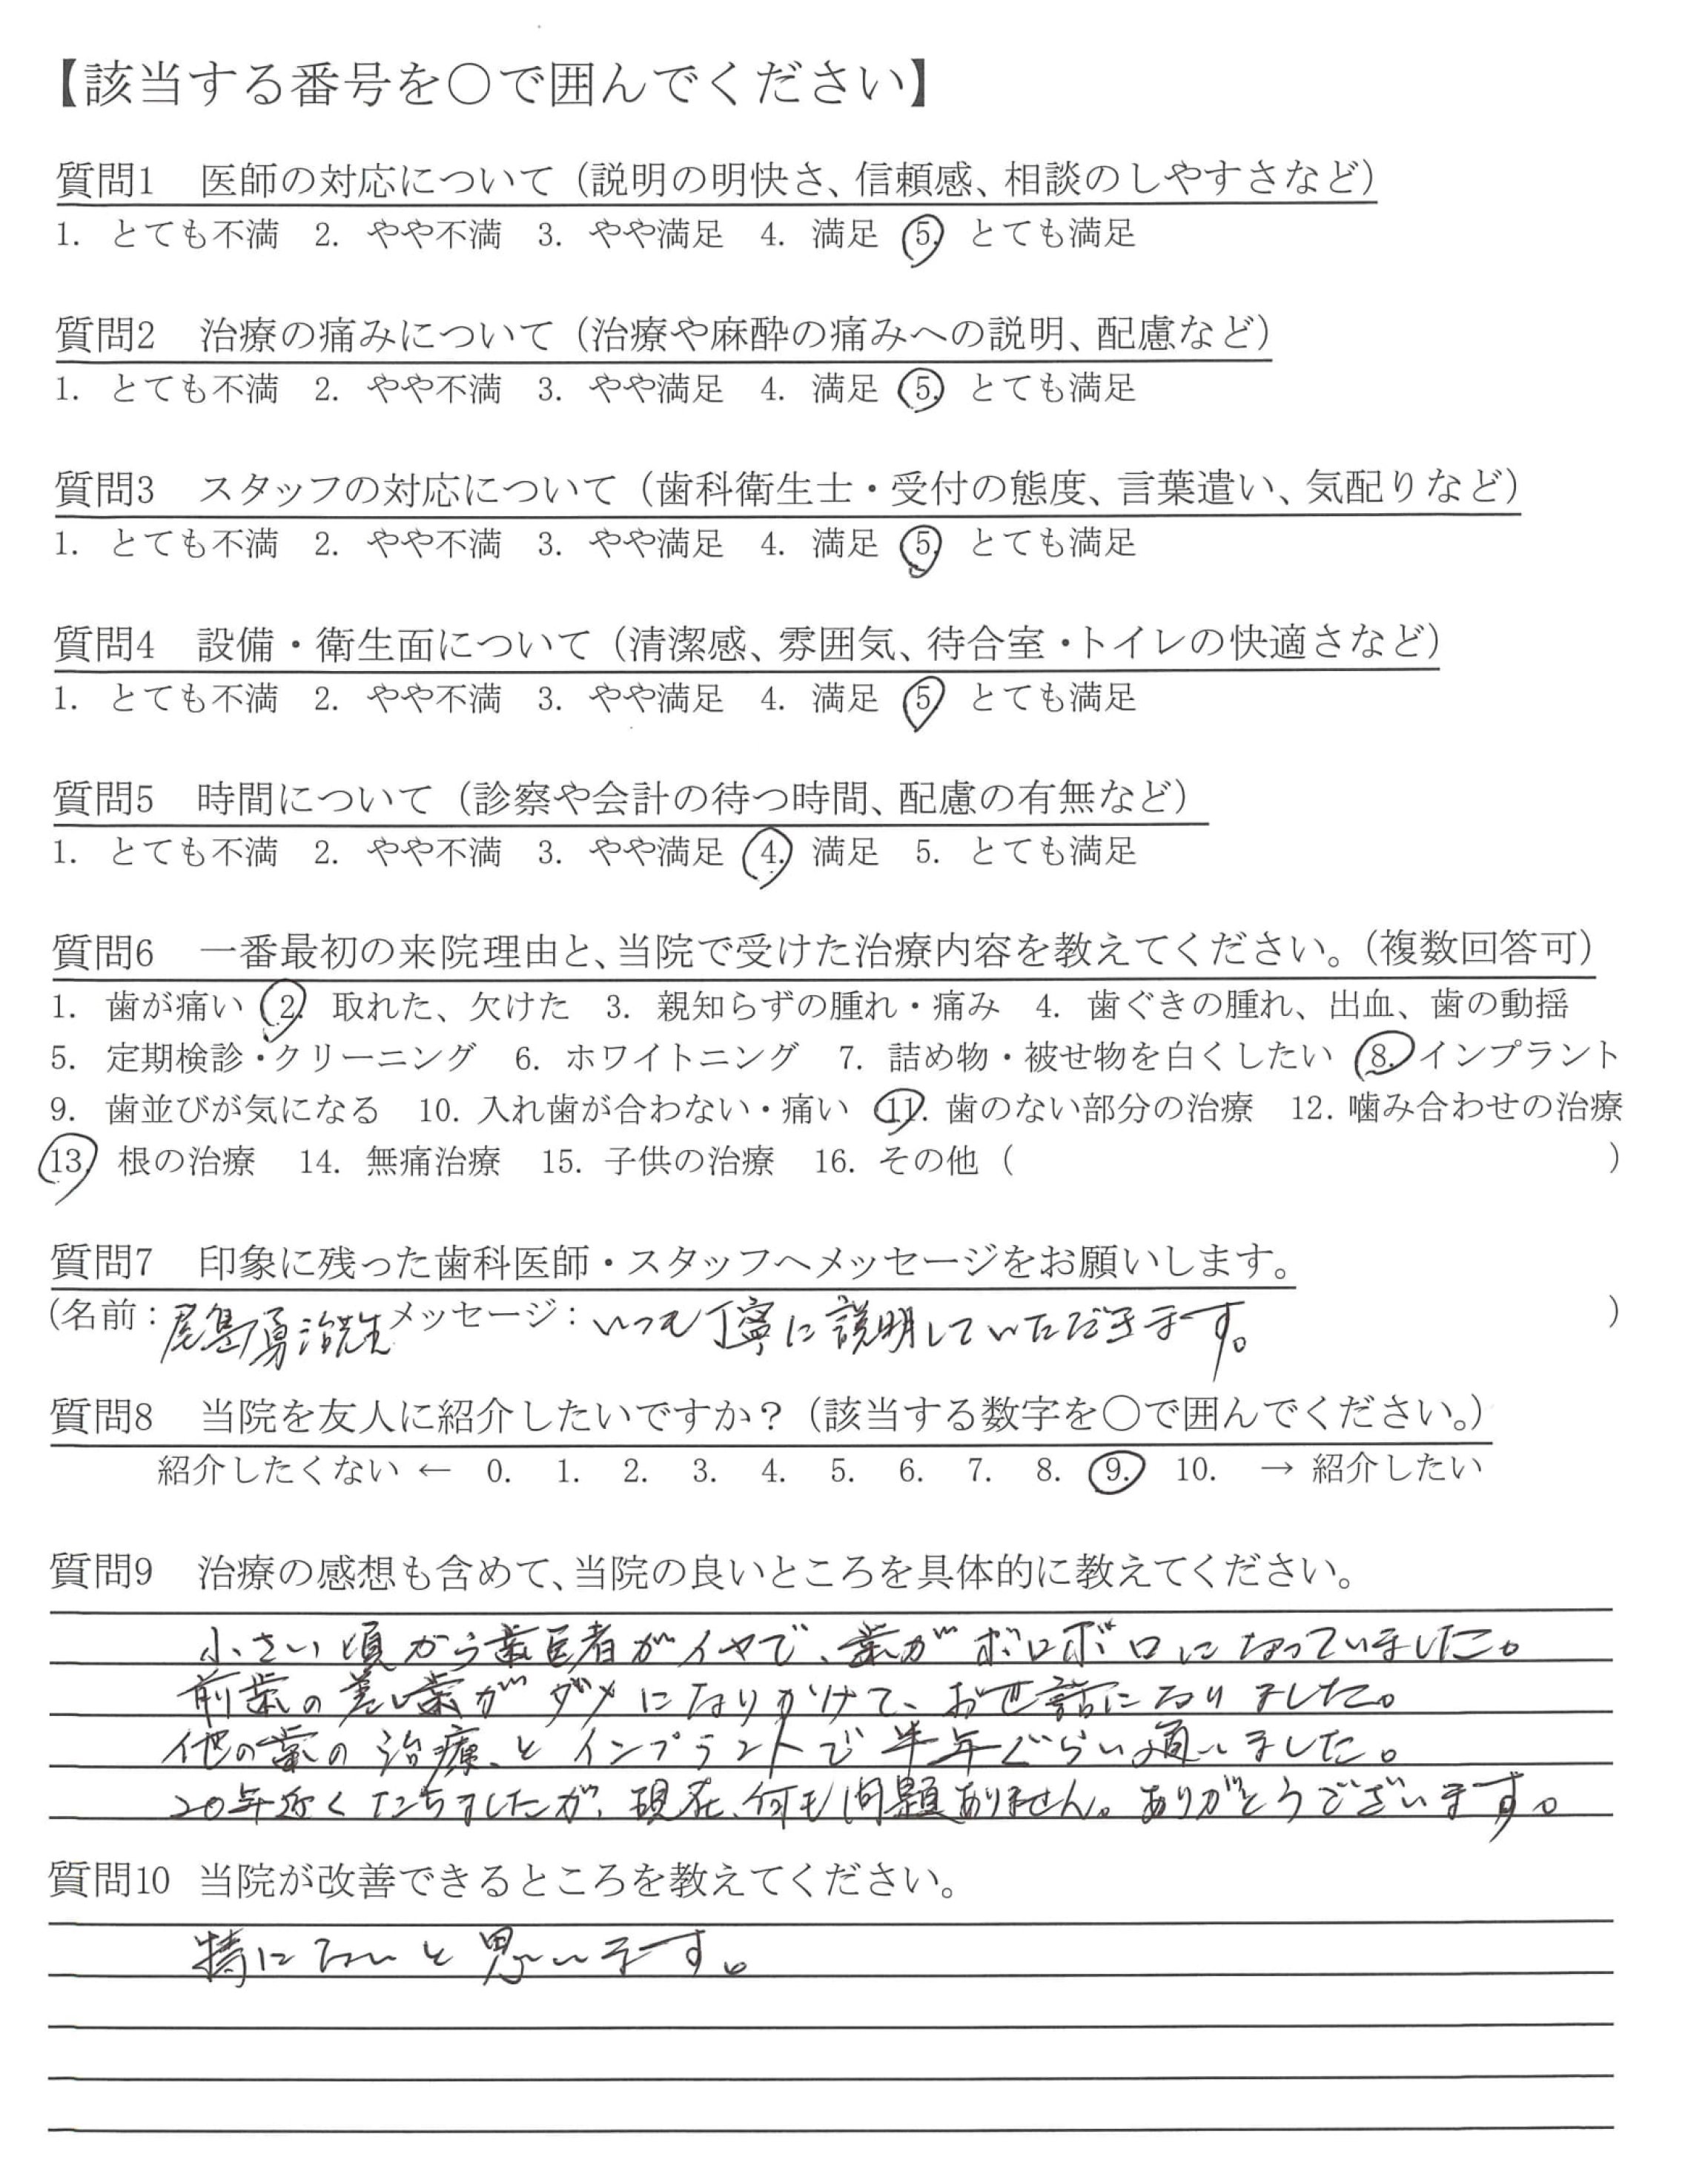 【該当する番号を〇で囲んでください】
質問1　医師の対応について（説明の明快さ、信頼感、相談のしやすさなど）
1. とても不満　2. やや不満　3. やや満足　4. 満足　5. とても満足
質問2　治療の痛みについて（治療や麻酔の痛みへの説明、配慮など）
1. とても不満　2. やや不満　3. やや満足　4. 満足　5. とても満足
質問3　スタッフの対応について（歯科衛生士・受付の態度、言葉遣い、気配りなど）
1. とても不満　2. やや不満　3. やや満足　4. 満足　5. とても満足
質問4　設備・衛生面について（清潔感、雰囲気、待合室・トイレの快適さなど）
1. とても不満　2. やや不満　3. やや満足　4. 満足　5. とても満足
質問5　時間について（診察や会計の待つ時間、配慮の有無など）
1. とても不満　2. やや不満　3. やや満足　4. 満足　5. とても満足
質問6　一番最初の来院理由と、当院で受けた治療内容を教えてください。（複数回答可）
1. 歯が痛い　2. 取れた、欠けた　3. 親知らずの腫れ・痛み　4. 歯ぐきの腫れ、出血、歯の動揺
5. 定期検診・クリーニング　6. ホワイトニング　7. 詰め物・被せ物を白くしたい　8. インプラント
9. 歯並びが気になる　10. 入れ歯が合わない・痛い　11. 歯のない部分の治療　12. 噛み合わせの治療
13. 根の治療　14. 無痛治療　15. 子供の治療　16. その他（　）
質問7　印象に残った歯科医師・スタッフへメッセージをお願いします。
（名前：尾島勇治先生 メッセージ：いつも丁寧に説明していただきます。　）
質問8　当院を友人に紹介したいですか？（該当する数字を〇で囲んでください。）
紹介したくない ← 0. 1. 2. 3. 4. 5. 6. 7. 8. 9. 10. → 紹介したい
質問9　治療の感想も含めて、当院の良いところを具体的に教えてください。
小さい頃から歯医者がイヤで、歯がボロボロになっていました。
前歯の差し歯がダメになりかけて、お世話になりました。
他の歯の治療とインプラントで半年ぐらい通いました。
20年近くたちましたが、現在、何も問題ありません。ありがとうございます。
質問10 当院が改善できるところを教えてください。
特にないと思います。